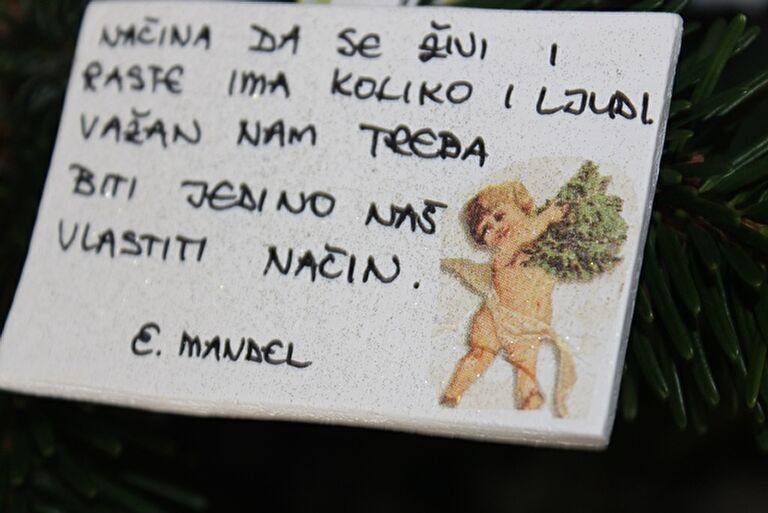 NAČINA DA SE ŽIVI I
RASTE IMA KOLIKO I LJUDI.
VAŽAN NAM TREBA
BITI JEDINO NAŠ
VLASTITI NAČIN.
E. MANDEL